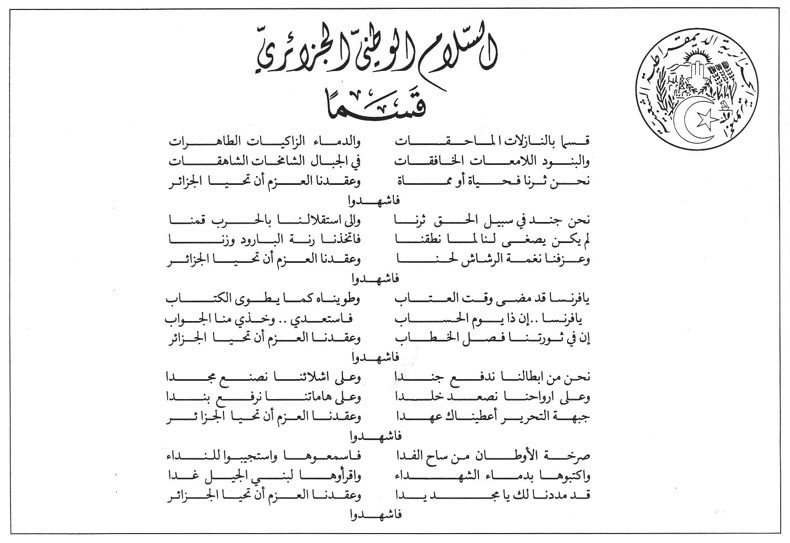 السّلام الوطنيّ الجزائريّ
قَسَمًا
الجمهورية الجزائرية الديمقراطية الشعبية
قسما بالنازلات الماحقات والدماء الزاكيات الطاهرات
والبنود اللامعات الخافقات في الجبال الشامخات الشاهقات
نحن ثرنا فحياة أو مماة وعقدنا العزم أن تحيا الجزائر
فاشهدوا
نحن جند في سبيل الحق ثرنا والى استقلالنا بالحرب قمنا
لم يكن يصغى لنا لما نطقنا فاتخذنا رنة البارود وزنا
وعزفنا نغمة الرشاش لحنا وعقدنا العزم أن تحيا الجزائر
فاشهدوا
يافرنسا قد مضى وقت العتاب وطويناه كما يطوى الكتاب
يافرنسا .. إن ذا يوم الحساب فاستعدي .. وخذي منا الجواب
إن في ثورتنا فصل الخطاب وعقدنا العزم أن تحيا الجزائر
فاشهدوا
نحن من ابطالنا ندفع جندا وعلى اشلائنا نصنع مجدا
وعلى ارواحنا نصعد خلدا وعلى هاماتنا نرفع بندا
جبهة التحرير أعطيناك عهدا وعقدنا العزم أن تحيا الجزائر
فاشهدوا
صرخة الأوطان من ساح الفدا فاسمعوها واستجيبوا للنداء
واكتبوها بدماء الشهداء واقرأوها لبني الجيل غدا
قد مددنا لك يا مجد يدا وعقدنا العزم أن تحيا الجزائر
فاشهدوا